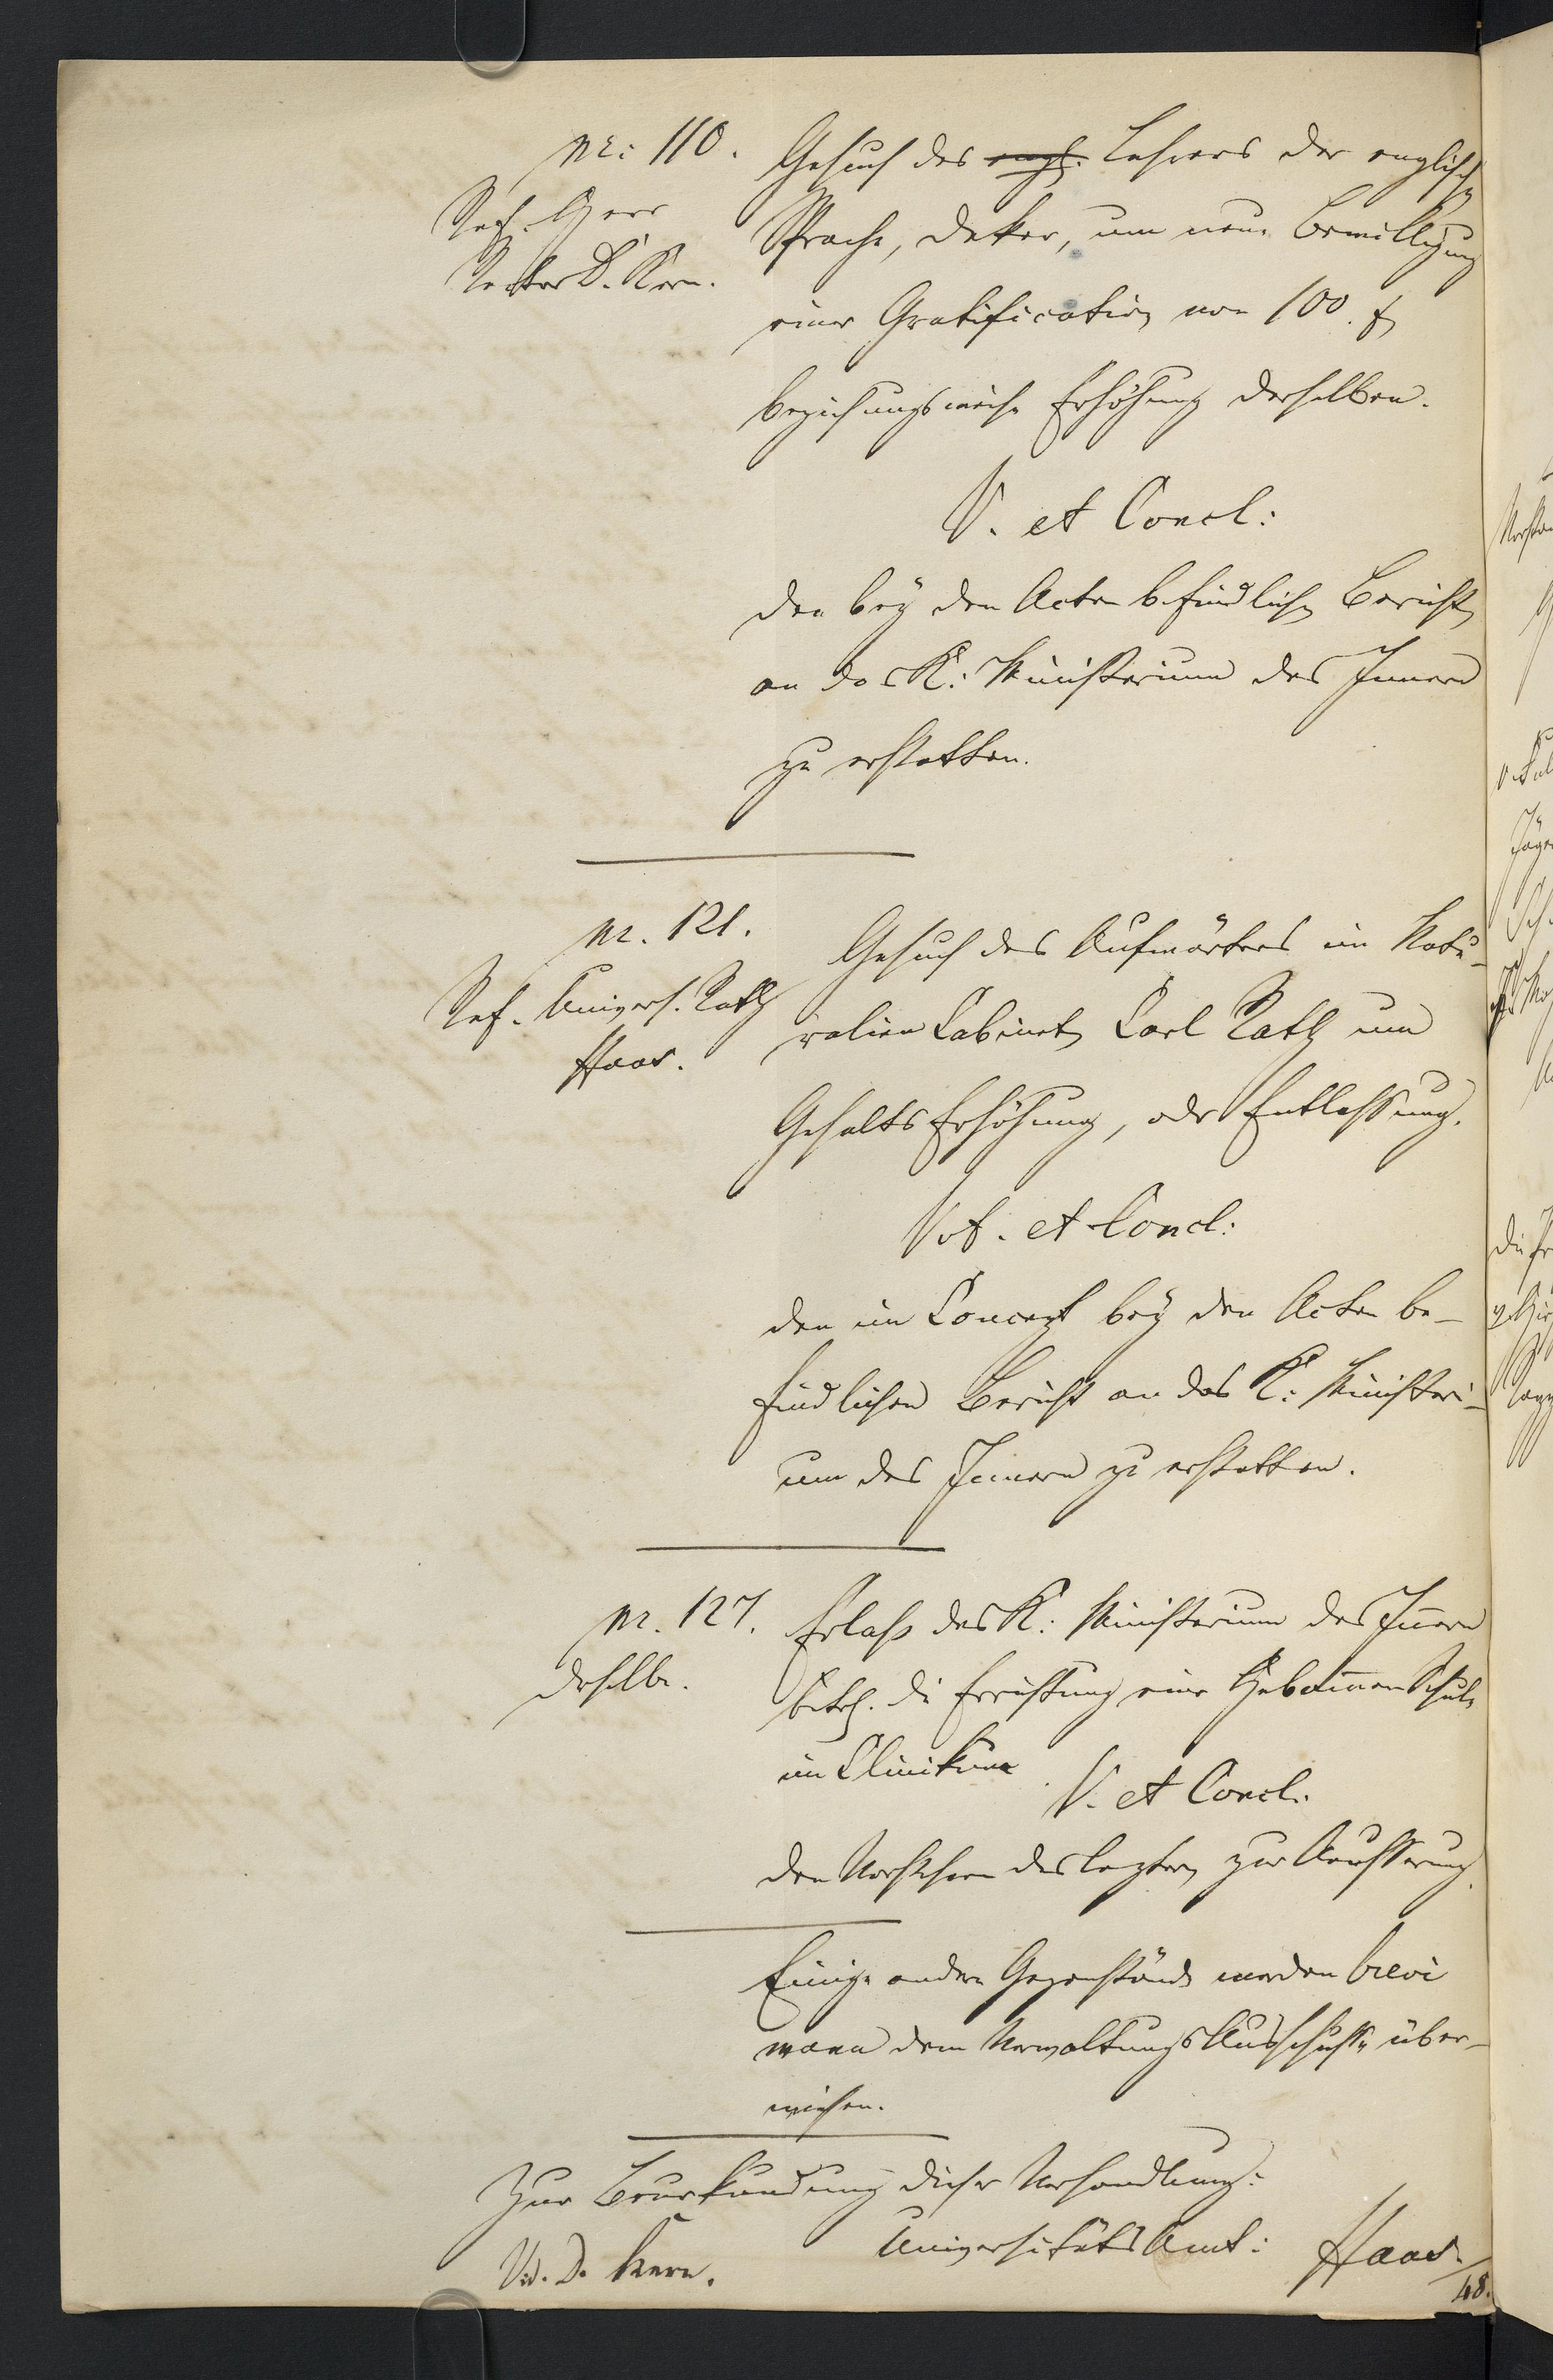 nr: 110.
Ref. Herr
Rector D. Kern.
Gesuch des engl. Lehrers der englischen
Sprache, Deker, um neue Bewilligung
einer Gratification von 100. f
beziehungsweise Erhöhung derselben.
V. et Concl:
den bey den Acten befindlichen Bericht
an das K: Ministerium des Innern
zu erstatten.
nr. 121.
Ref. Univers. Rath
Haas.
Gesuch des Aufwärters im Natu-
ralien Cabinet, Carl Rath um
Gehalts Erhöhung, oder Entlassung.
Vot. et Concl:
den im Concept bey den Acten be-
findlichen Bericht an das K: Ministeri-
um des Innern zu erstatten.
nr. 127.
derselbe.
Erlaß des K: Ministerium des Iñern
betr. die Errichtung einer Hebam̄en Schule
im Clinikum.
V. et Concl.
den Vorstehern des leztern zur Aeusserung.
Einige andere Gegenstände werden brevi
manu dem Verwaltungs Ausschusse über-
wiesen.
Zur Beurkundung dieser Verhandlung:
Universitäts Amt: Haas.
Vd. D. Kern.
48.